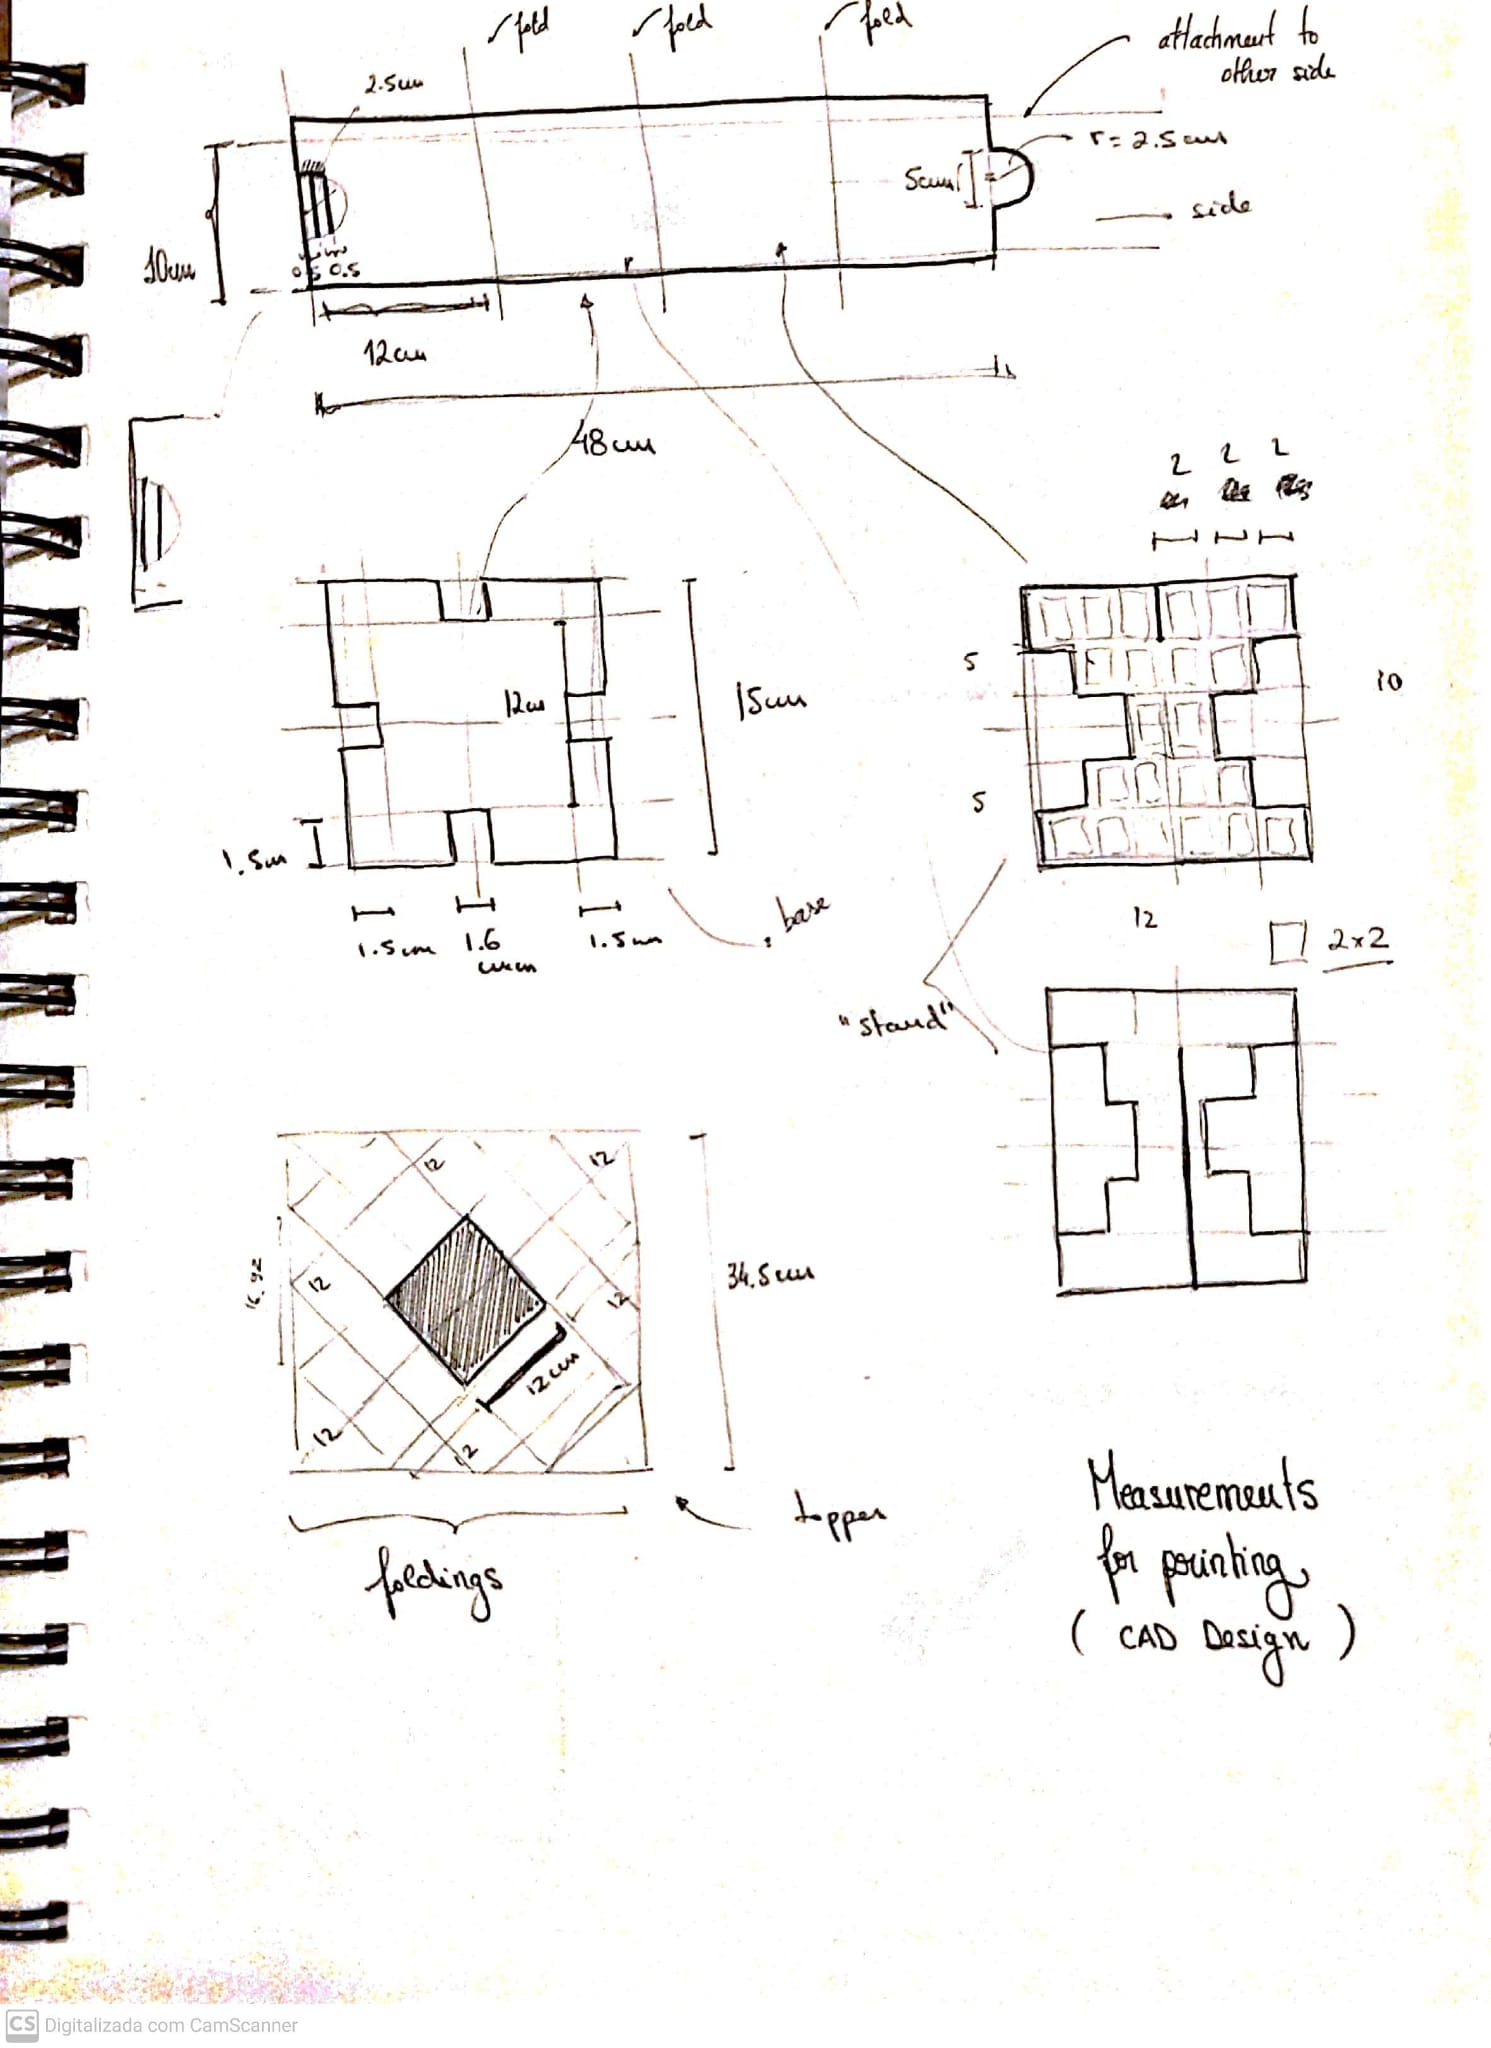 fold
fold
fold
attachment to
other side
2.5cm
r = 2.5cm
5cm
side
10cm
0.5 0.5
12cm
48cm
2 2 2
5
10
12cm
15cm
5
1.5cm
1.5cm
1.6
1.5cm
base
12
2x2
"stand"
12
12
16.92
12
12
34.5cm
12cm
12
12
topper
foldings
Measurements
for printing
( CAD Design )
CS Digitalizada com CamScanner